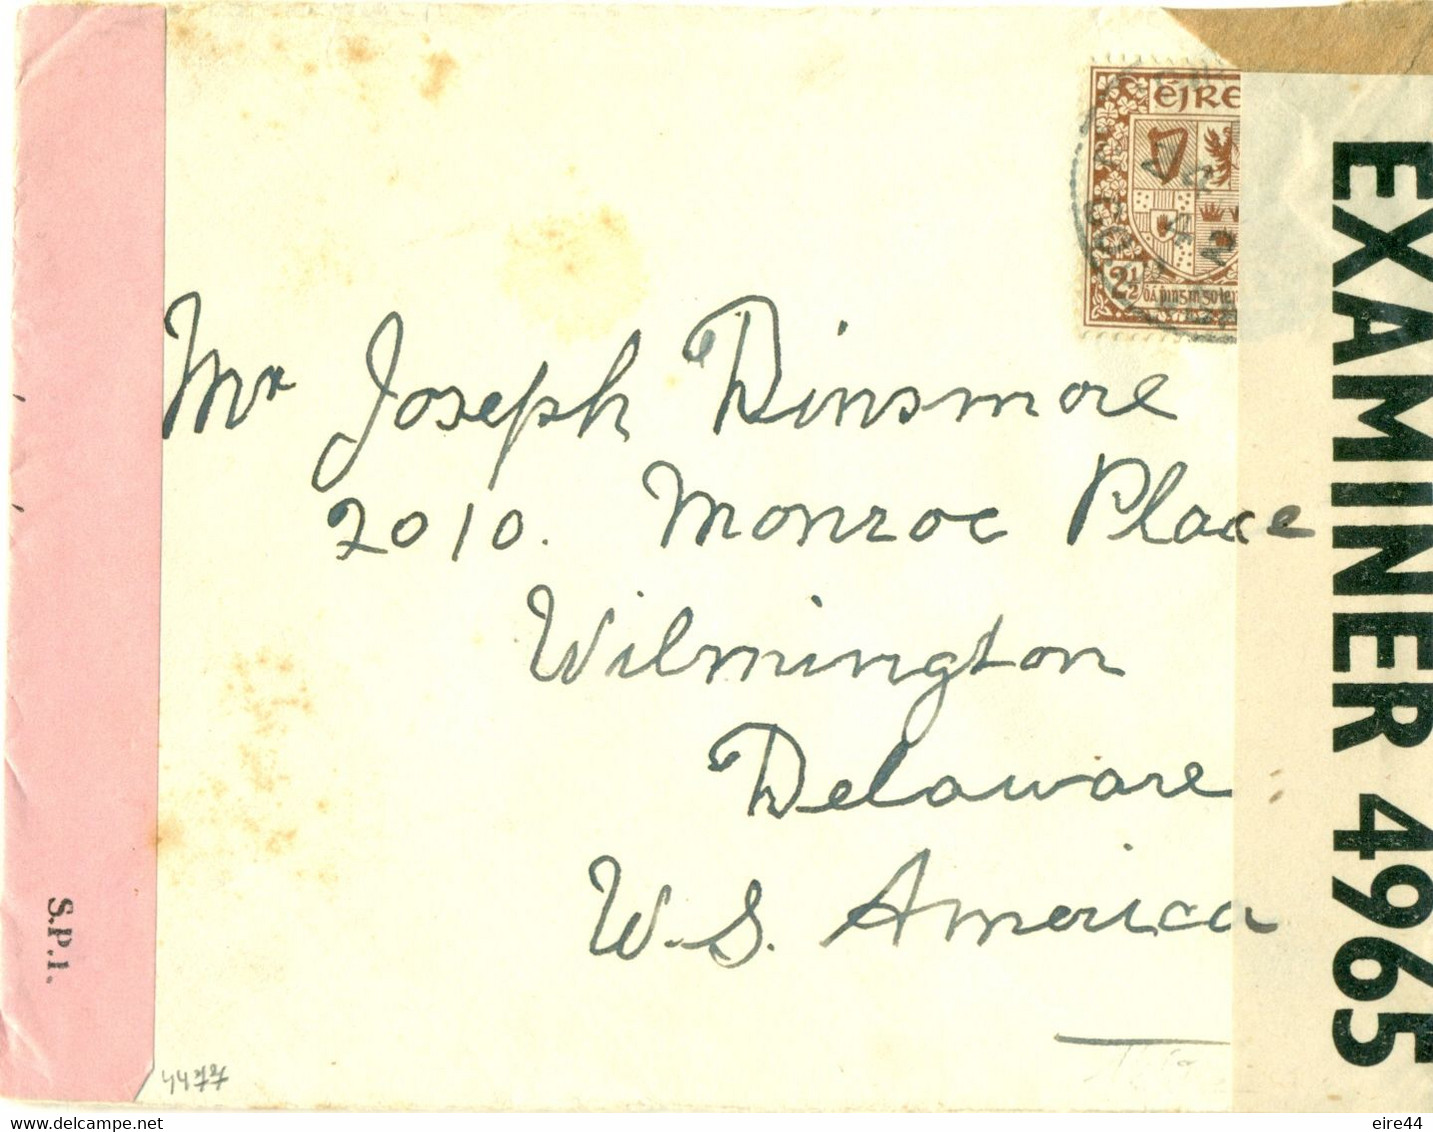 éIRE
2½
Mr Joseph Dinsmore
2010. Monroe Place
Wilmington
Delaware
W.S. America
EXAMINER 4965
S.P.I.
4477
delcampe.net
eire44